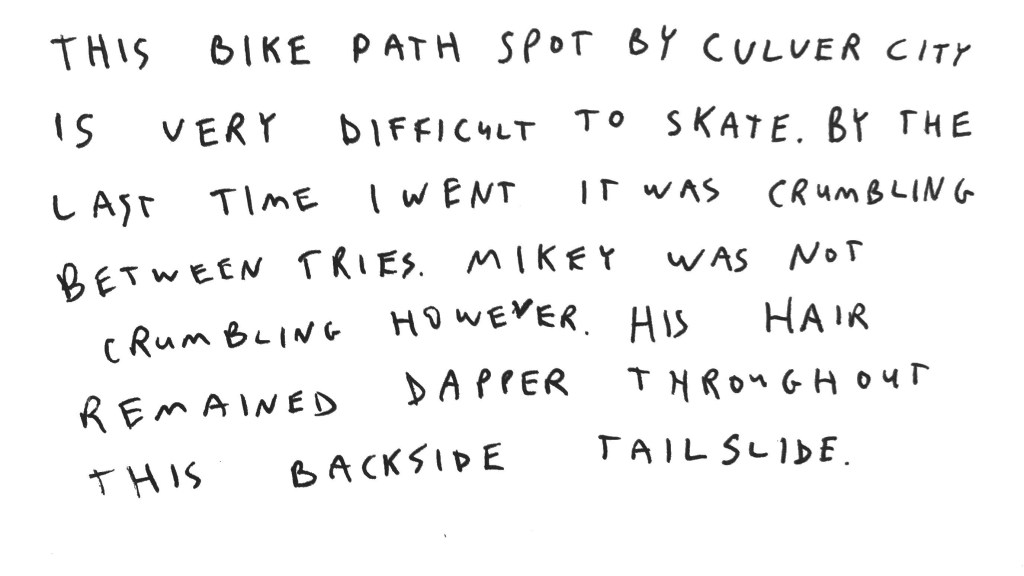 THIS BIKE PATH SPOT BY CULVER CITY
IS VERY DIFFICULT TO SKATE. BY THE
LAST TIME I WENT IT WAS CRUMBLING
BETWEEN TRIES. MIKEY WAS NOT
CRUMBLING HOWEVER. HIS HAIR
REMAINED DAPPER THROUGHOUT
THIS BACKSIDE TAILSLIDE.